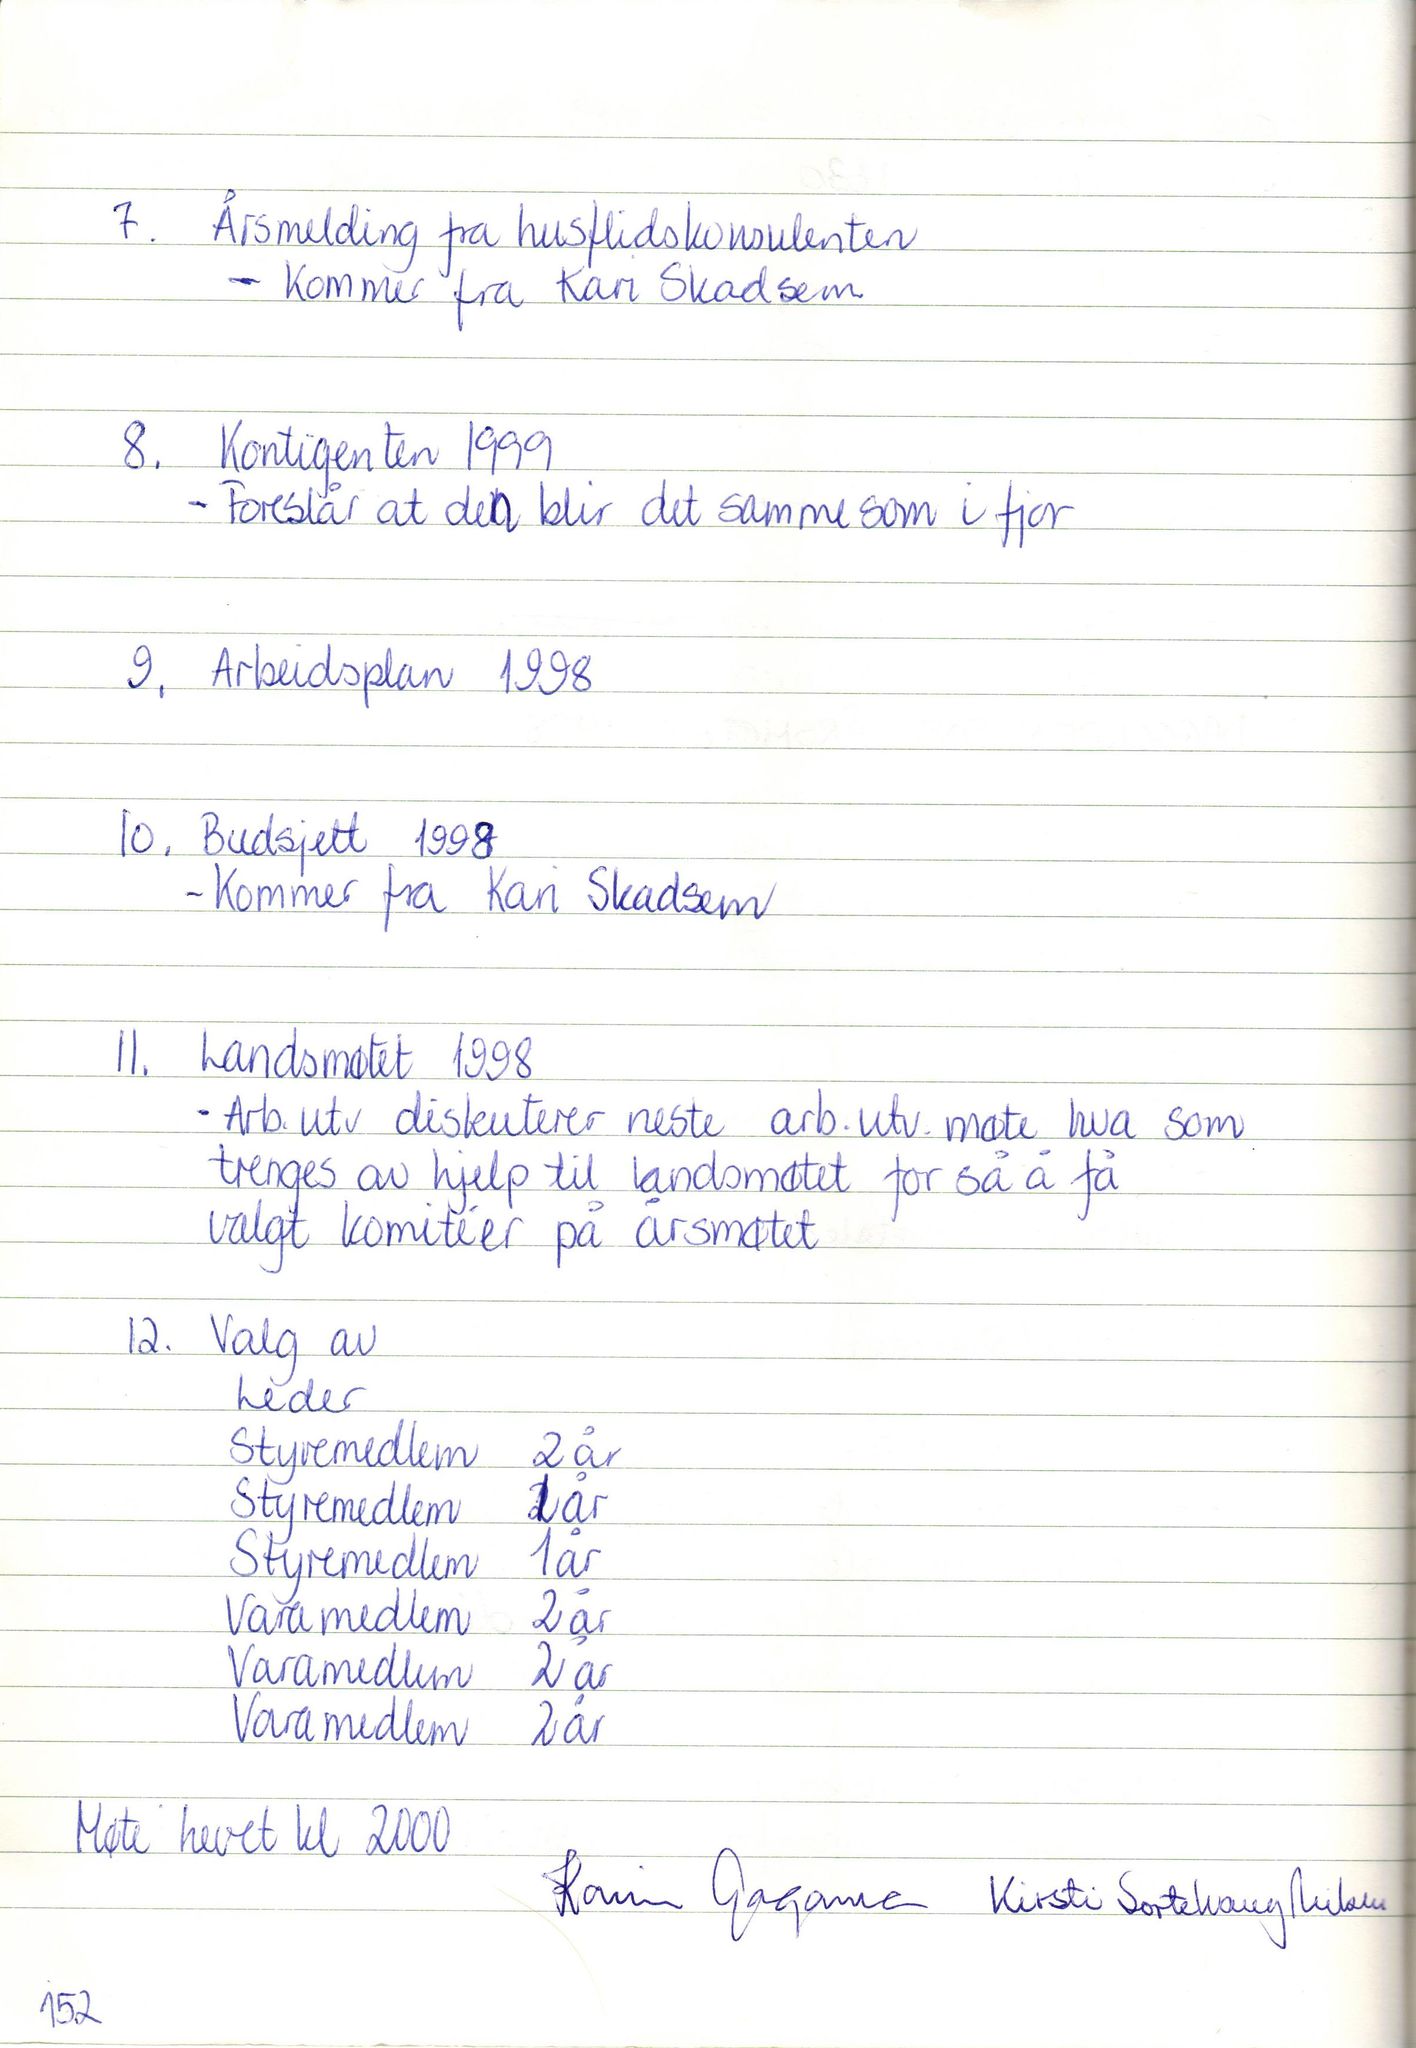 7. Årsmelding fra husflidskonsulenten
- Kommer fra Kari Skadsem
8. Kontigenten 1999
- Foreslår at den blir det samme som i fjor
9. Arbeidsplan 1998
10. Budsjett 1998
- Kommer fra Kari Skadsem
11. Landsmøtet 1998
- Arb. utv diskuterer neste arb. utv. møte hva som
trenges av hjelp til landsmøtet for så å få
valgt komitéer på årsmøtet
12. Valg av
Leder
Styremedlem 2 år
Styremedlem 1 år
Styremedlem 1 år
Varamedlem 2 år
Varamedlem 2 år
Varamedlem 2 år
Møte hevet kl 2000
Kirsti
152